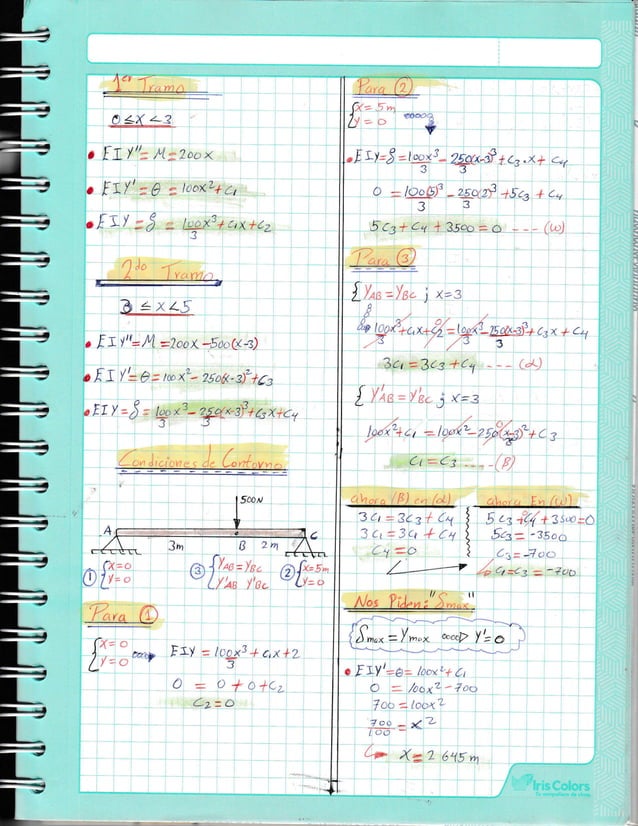 1er Tramo
0 ≤ X < 3
• EIY'' = M = 200X
• EIY' = θ = 100X² + C1
• EIY = δ = 100X³/3 + C1X + C2
2do Tramo
3 ≤ X < 5
• EIY'' = M = 200X - 500(X-3)
• EIY' = θ = 100X² - 250(X-3)² + C3
• EIY = δ = 100X³/3 - 250(X-3)³/3 + C3X + C4
Condiciones de Contorno
500N
A C
3m B 2m
① {X=0 Y=0 ③ {YAB = YBC Y'AB Y'BC ② {X=5m Y=0
Para ①
{X=0 Y=0 EIY = 100X³/3 + C1X + 2
0 = 0 + 0 + C2
C2 = 0
Para ②
{X=5m Y=0
• EIY = δ = 100X³/3 - 250(X-3)³/3 + C3·X + C4
0 = 100(5)³/3 - 250(2)³/3 + 5C3 + C4
5C3 + C4 + 3500 = 0 --- (ω)
Para ③
{YAB = YBC ; X=3
100X³/3 + C1X + C2 = 100X³/3 - 250(X-3)³/3 + C3X + C4
3C1 = 3C3 + C4 --- (α)
{Y'AB = Y'BC ; X=3
100X² + C1 = 100X² - 250(X-3)² + C3
C1 = C3 --- (β)
ahora (β) en (α)
3C1 = 3C3 + C4
3C1 = 3C1 + C4
C4 = 0
ahora En (ω)
5C3 + C4 + 3500 = 0
5C3 = -3500
C3 = -700
C1 = C3 = -700
Nos Piden: "δmax"
δmax = Ymax Y' = 0
• EIY' = θ = 100X² + C1
0 = 100X² - 700
700 = 100X²
700/100 = X²
X = 2645m
Iris Colors